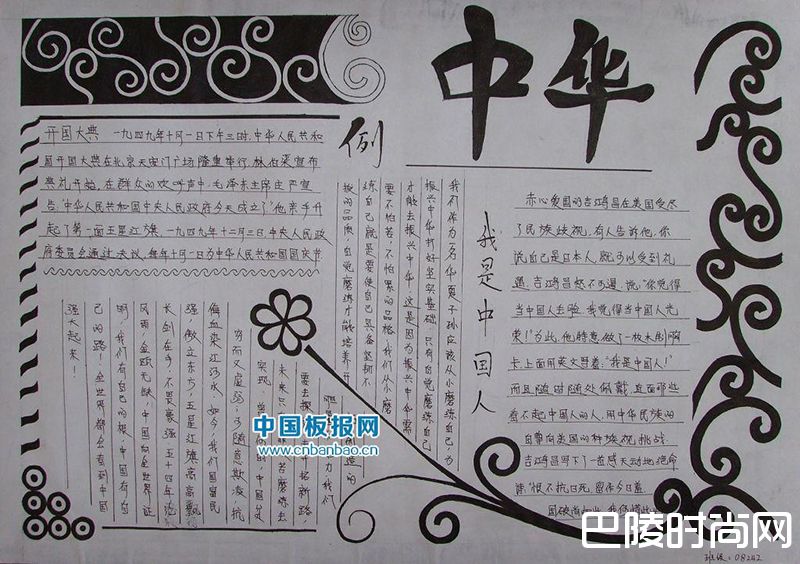 中华
开国大典 一九四九年十月一日下午三时,中华人民共和
国开国大典在北京天安门广场隆重举行,林伯渠宣布
典礼开始,在群众的欢呼声中,毛泽东主席庄严宣
告:"中华人民共和国中央人民政府今天成立了"他亲手升
起了第一面五星红旗 一九四九年十二月三日中央人民政
府委员会通过决议,每年十月一日为中华人民共和国国庆节
例
我们作为一名华夏子孙应该从小磨练自己为
振兴中华打好坚实基础,只有自觉磨练自己
才能去振兴中华,这是因为振兴中华需
要不怕苦,不怕累的品格,我们从小磨
练自己就是要使自己具备坚韧不
拔的品质,自觉磨练才能培养开
我是中国人
赤心爱国的吉鸿昌在美国受尽
了民族歧视,有人告诉他,你
说自己是日本人,就可以受到礼
遇,吉鸿昌怒不可遏,说"你觉得
当中国人丢脸,我觉得当中国人光
荣!"为此,他特意做了一枚木制胸
卡,上面用英文写着:"我是中国人!"
而且随时随处佩戴,直面那些
看不起中国人的人,用中华民族的
自尊向美国的种族歧视挑战
吉鸿昌写下了一首感天动地绝命
诗:"恨不抗日死,留作今日羞
国破尚如此,我何惜此
要去探
未来只
实现
穷而又虚弱,可随意欺凌,抗
侮血染江河水,如今,我们国富民
强傲立东方,五星红旗高高飘扬
长剑在手,不畏豪强 五十四年沧
风雨,金瓯无缺,中国向全世界证
明,我们有自己的根,中国有自
己的路!全世界都会看到中国
强大起来!
中国板报网
www.cnbanbao.cn
巴陵时尚网
班级:08242